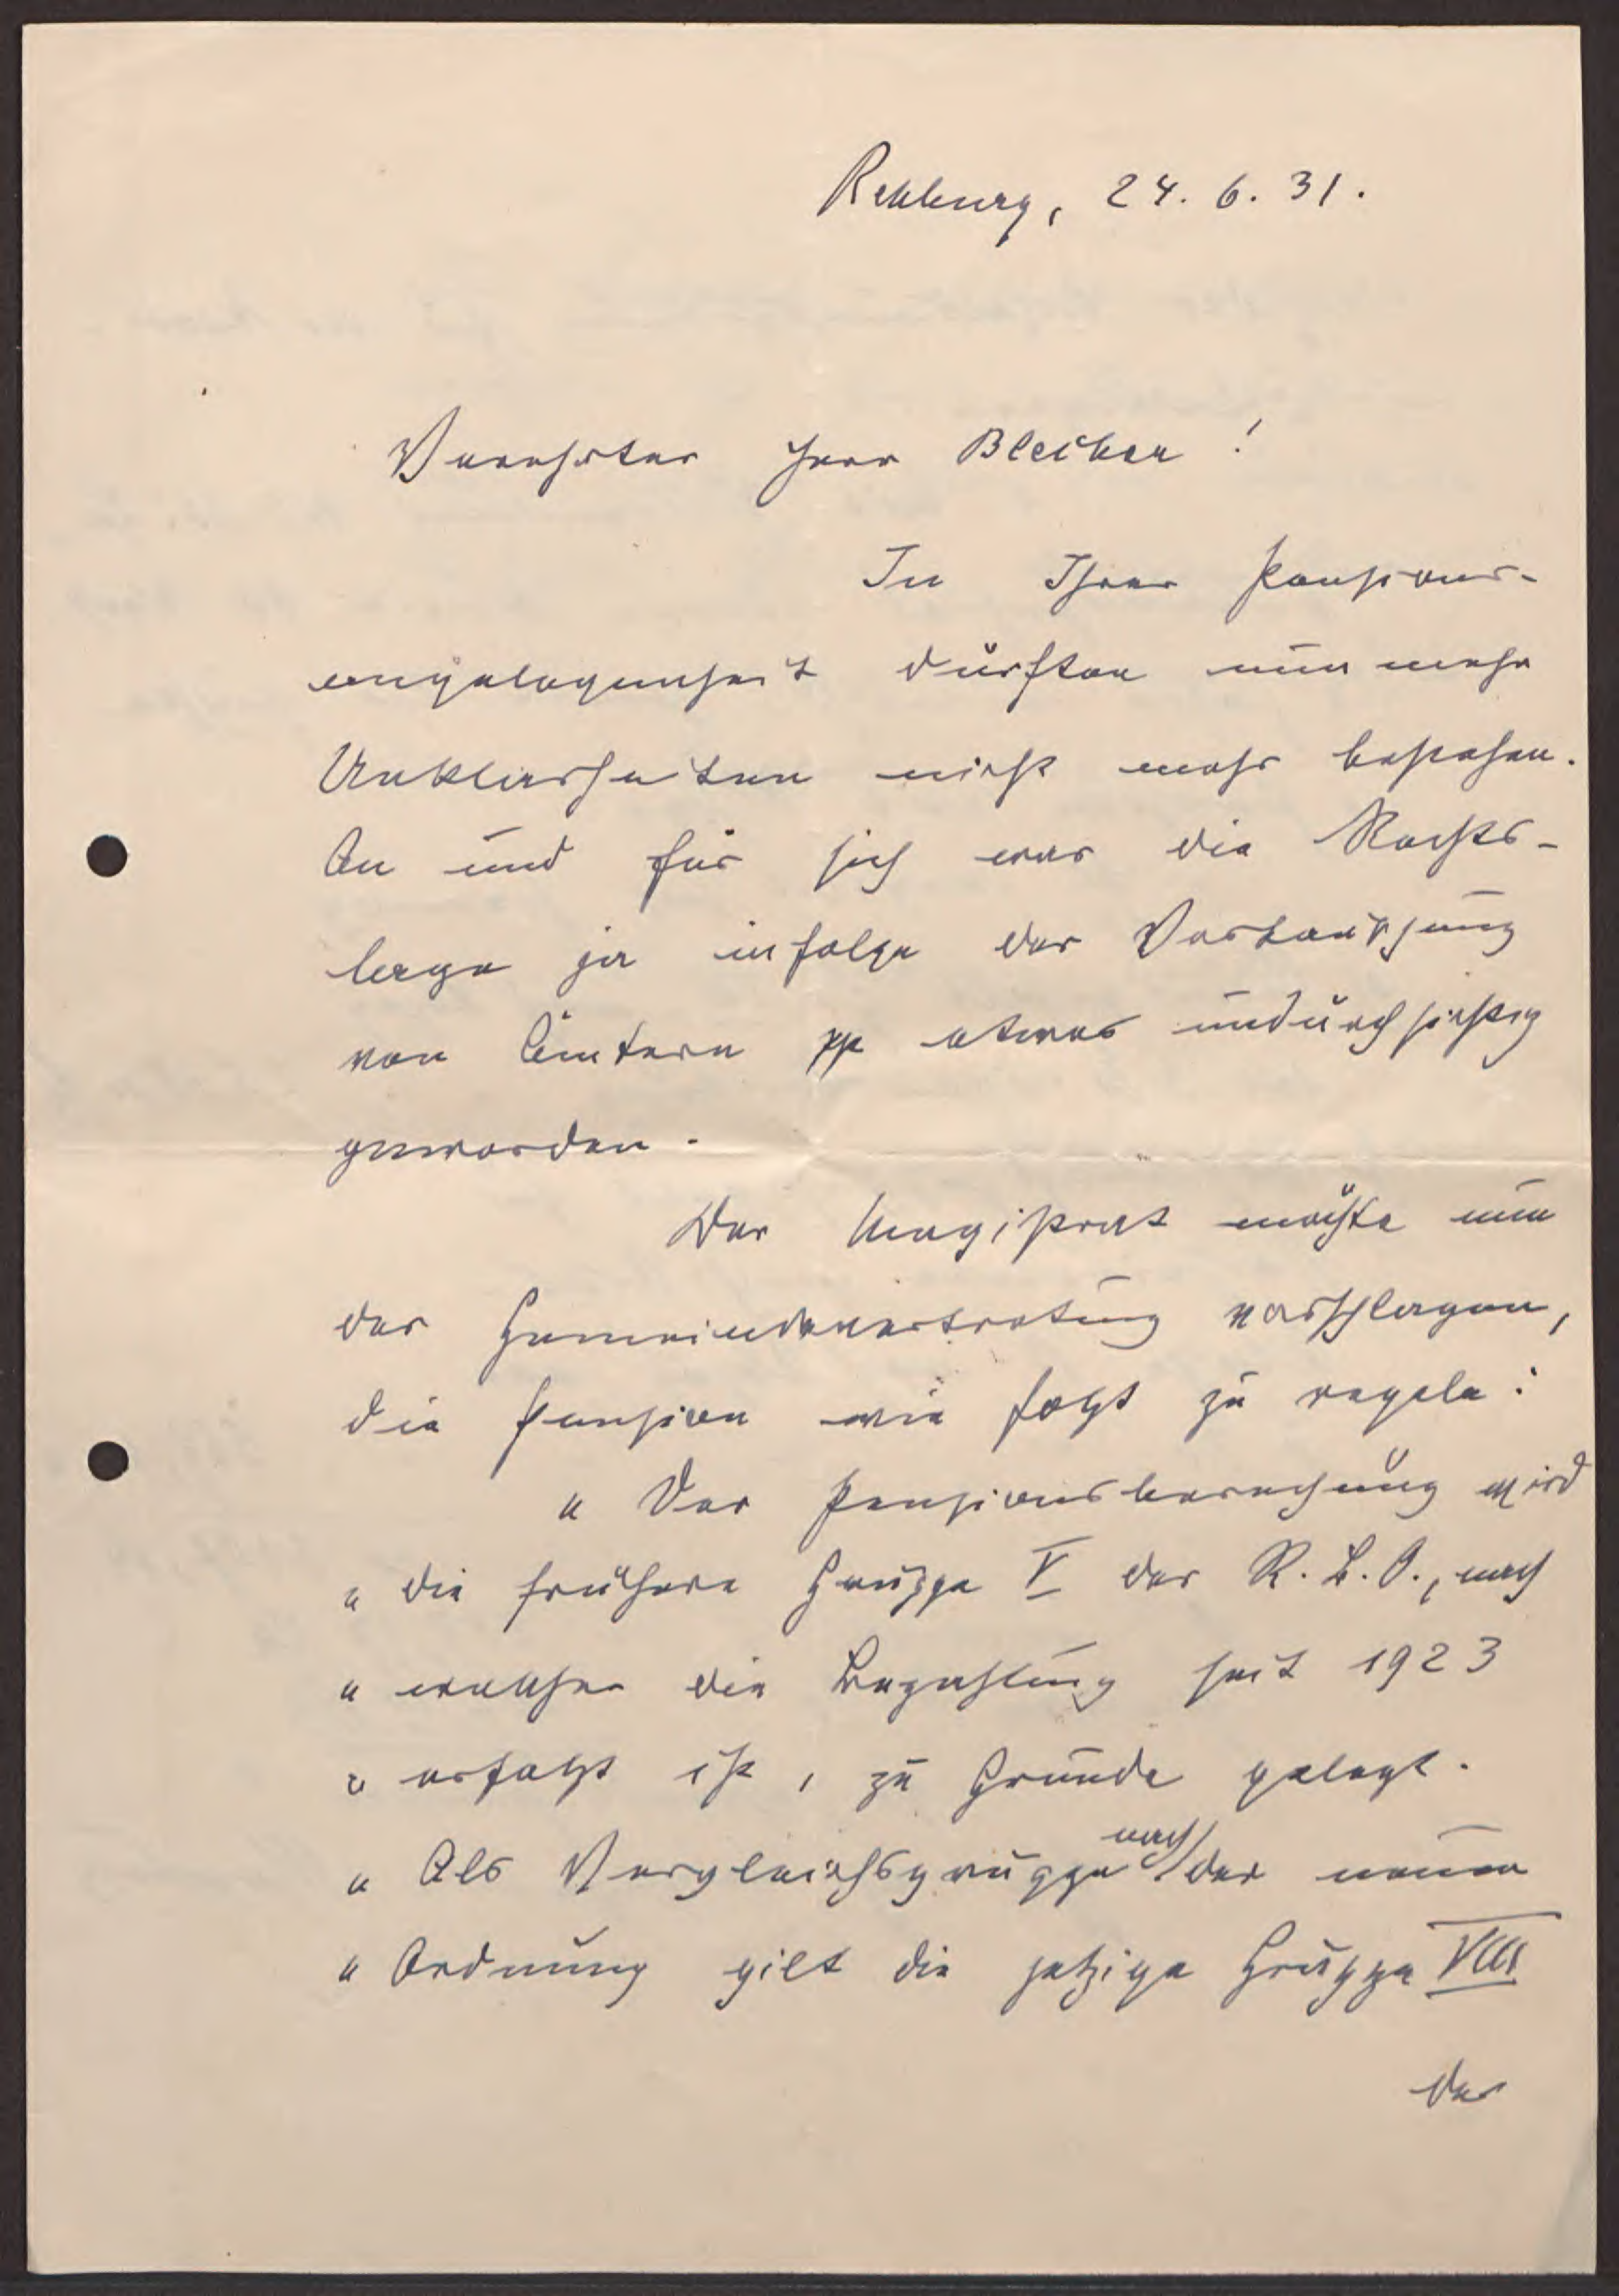 Rehburg, 24. 6. 31.
Verehrter Herr Bleiber!
In Ihrer Pensions-
angelegenheit dürften nun mehr
Unklarheiten nicht mehr bestehen.
An und für sich war die Rechts-
lage ja infolge der Vertauschung
von Ämtern pp etwas undurchsichtig
geworden.
Der Magistrat möchte nun
der Gemeindevertretung vorschlagen,
die Pension wie folgt zu regeln:
"Der Pensionsberechnung wird
"die frühere Gruppe V der R. B. O., nach
"welcher die Bezahlung seit 1923
"erfolgt ist, zu Grunde gelegt.
"Als Vergleichsgruppe nach der neuen
"Ordnung gilt die jetzige Gruppe VIII
der